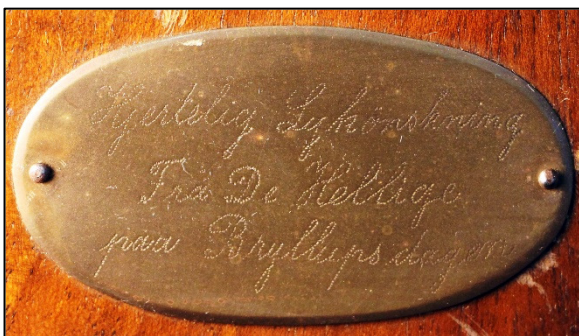 Hjertelig Lykönskning
- Fra De Hellige
paa Bryllupsdagen